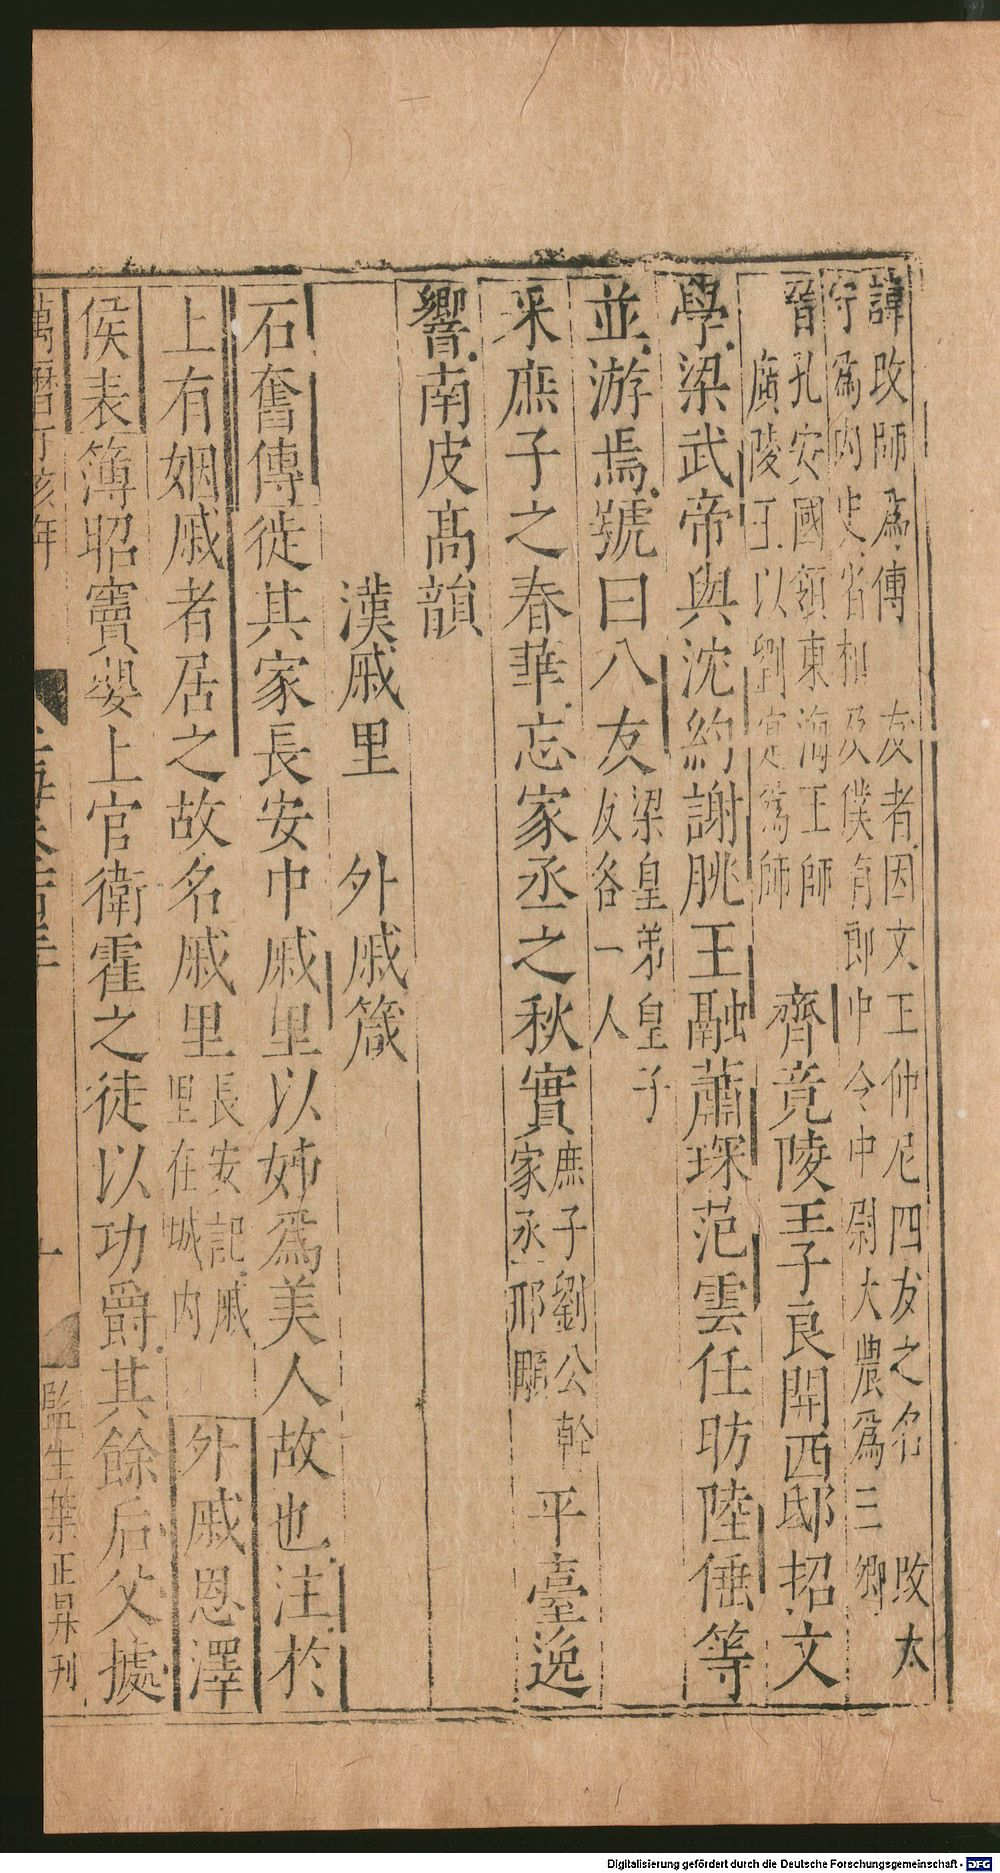 諱改師爲傅 友者因文王仲尼四友之名 改太
守爲內史省相及僕有郎中令中尉大農爲三卿
晉孔安國領東海王師
廣陵王以劉寔爲師 齊竟陵王子良開西邸招文
學梁武帝與沈約謝朓王融蕭琛范雲任昉陸倕等
並游焉號曰八友梁皇弟皇子
友各一人
采庶子之春華忘家丞之秋實庶子劉公幹
家丞邢顒 平臺逸
響南皮高韻
漢戚里 外戚箴
石奮傳徙其家長安中戚里以姊爲美人故也注於
上有姻戚者居之故名戚里長安記戚
里在城內 外戚恩澤
侯表簿昭竇嬰上官衛霍之徒以功爵其餘后父據
萬曆丁亥年
玉海卷
十
監生葉正昇刊
Digitalisierung gefördert durch die Deutsche Forschungsgemeinschaft - DFG